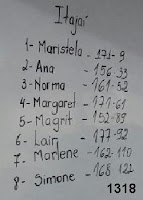 Itajaí
1- Maristela - 171-9
2- Ana - 156-39
3- Norma - 161-52
4- Margaret - 171-61
5- Magrit - 152-89
6- Lairi - 177-92
7- Marlene - 162-110
8- Simone - 168-122
1318